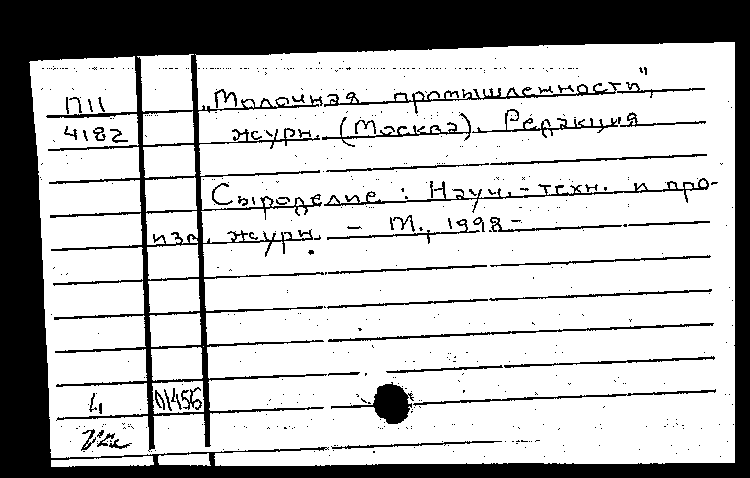 П11 „Молочная промышленности",
4182 журн. (Москва). Редакция
Сыроделие : Науч.-техн. и про-
изв. журн. – М., 1998-
01456